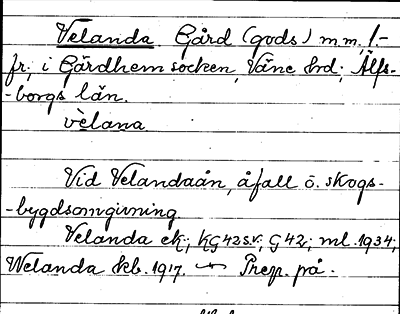 Velanda Gård (gods) m.m. 1.-
fr. i Gärdhem socken, Väne hrd; Älfs-
-borgs län.
vèlana
Vid Velandaån, åfall o. skogs-
-bygdsomgivning.
Velanda ek; KG42s.v; G42; ml. 1934;
Welanda kb. 1917. Prep. på.